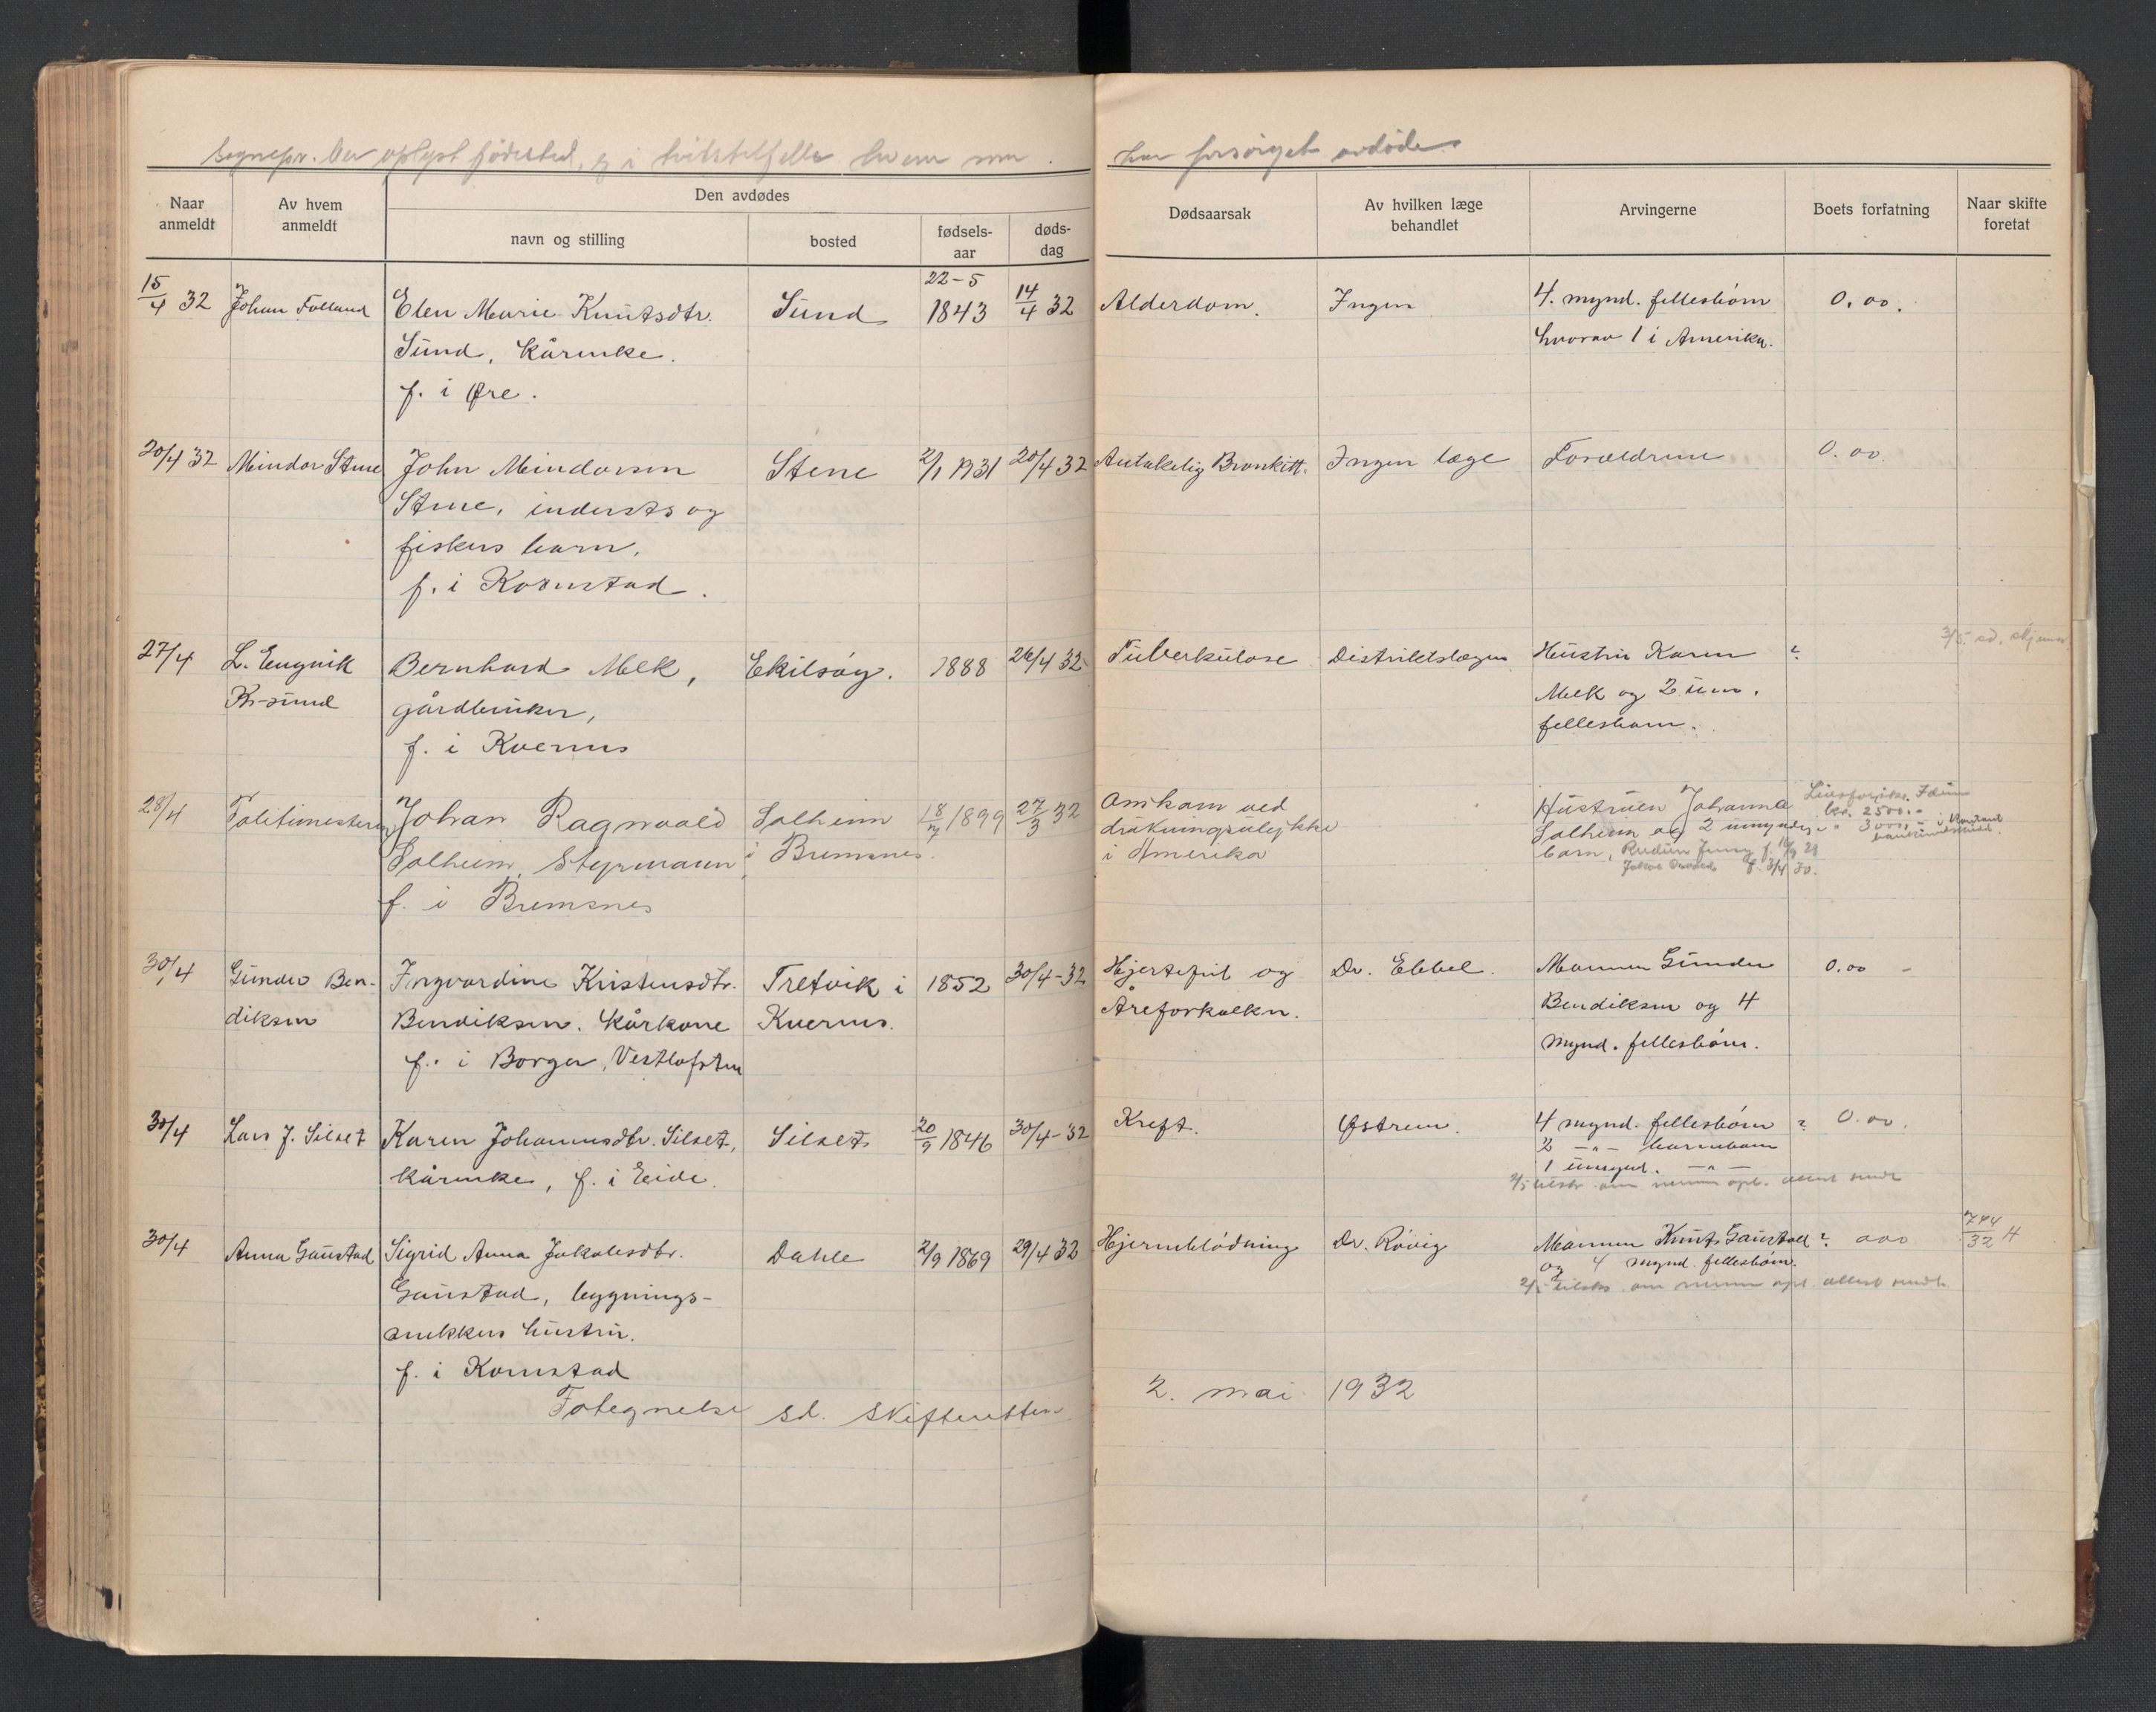 Sognepr. ber oplyst fødested, og i tvilstilfelle hvem som har forsørget avdøde.
Naar anmeldt
Av hvem anmeldt
Den avdødes
navn og stilling
bosted
fødsels-aar
døds-dag
Dødsaarsak
Av hvilken læge behandlet
Arvingerne
Boets forfatning
Naar skifte foretat
22-5
15/4 32 Johan Folland Elen Marie Knutsdtr. Sund 1843 14/4 32 Alderdom. Ingen 4. mynd. fellesbørn 0.00.
Sund, kårenke. hvorav 1 i Amerika.
f. i Øre.
20/4 32 Mindor Stene John Mindorsen Stene 2/1 1931 20/4 32 Antakelig Bronkitt. Ingen læge Forældrene 0.00.
Stene, indersts og
fiskers barn.
f. i Kornstad.
3/5 sd. skjema
27/4 L. Engvik Bernhard Melk, Ekilsøy. 1888 26/4 32 Tuberkulose Distriktslægen Hustru Karen ?
Kr-sund gårdbruker, Melk og 2 um.
f. i Kvernes fellesbarn.
28/4 Politimesteren Johan Ragnvald Solheim 18/7 1899 27/3 32 Omkom ved Hustruen Johanna Livsforsikr.
Solheim, Styrmann i Bremsnes. drukningsulykke Solheim og 2 umyndige kr. 2500.-
i Amerika barn, f. 3/4 30.
f. i Bremsnes
30/4 Gunder Ben- Ingvardine Kristensdtr. Tretvik i 1852 30/4-32 Hjertefeil og Dr. Ebbel. Mannen Gunder 0.00 -
diksen Bendiksen. Kårkone Kvernes. Åreforkalkn. Bendiksen og 4
f. i Borger, Vestlofoten mynd. fellesbørn.
30/4 Lars J. Silset Karen Johannesdtr. Silset, Silset 20/9 1846 30/4-32 Kreft. Østrem. 4 mynd. fellesbørn ? 0.00.
2 -"- barnebarn
kårenke, f. i Eide. 1 umynd. -"-
2/5 tilskr. om navne opl. attest sendt
30/4 Anna Gaustad Sigrid Anna Jakobsdtr. Dahle 2/9 1869 29/4 32 Hjerneblødning Dr. Rövig Mannen Knut Gaustad ? 000
og 4 mynd. fellesbørn.
Gaustad, bygnings- 2/5 tilskr. om navne opl. attest sendt.
snekkers hustru.
f. i Kornstad
Fotegnelse sd. skifteretten 2. mai 1932